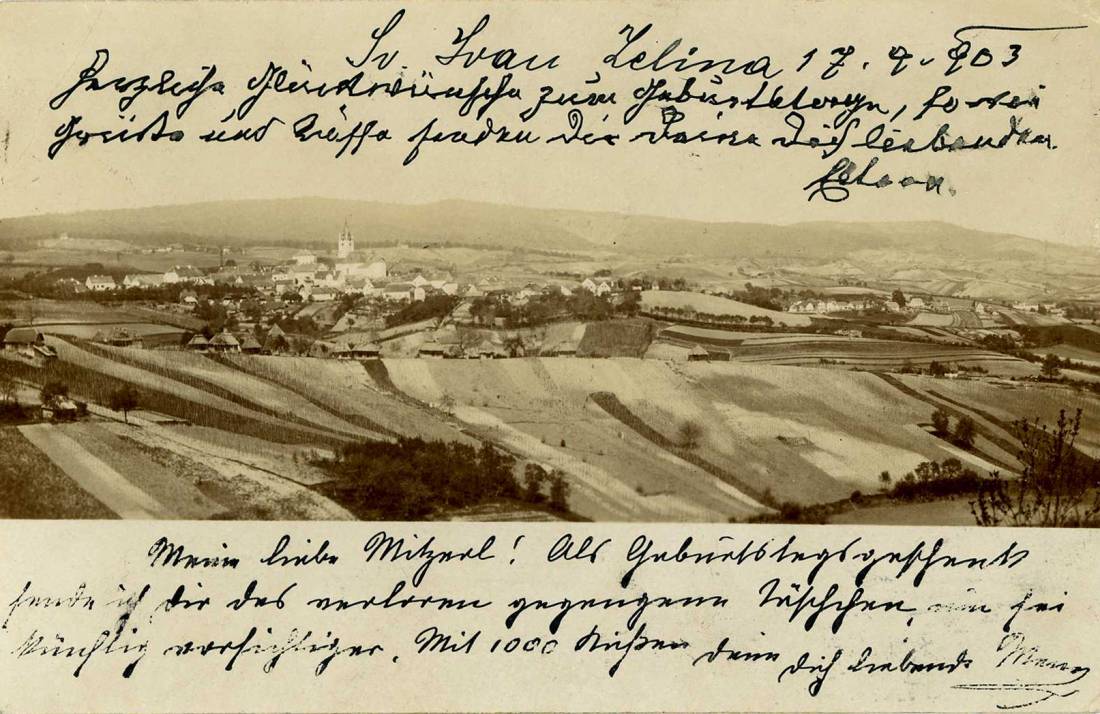 Sv. Ivan Zelina 17. 9. 903
Herzliche Glückwünsche zum Geburtstage, sowie
Grüße und Küsse senden Dir Deine Dich liebenden
Eltern.
Meine liebe Mitzerl! Als Geburtstagsgeschenk
sende ich dir das verloren gegangene Täschchen, nun sei
künftig vorsichtiger. Mit 1000 Küßen deine dich liebende Mama